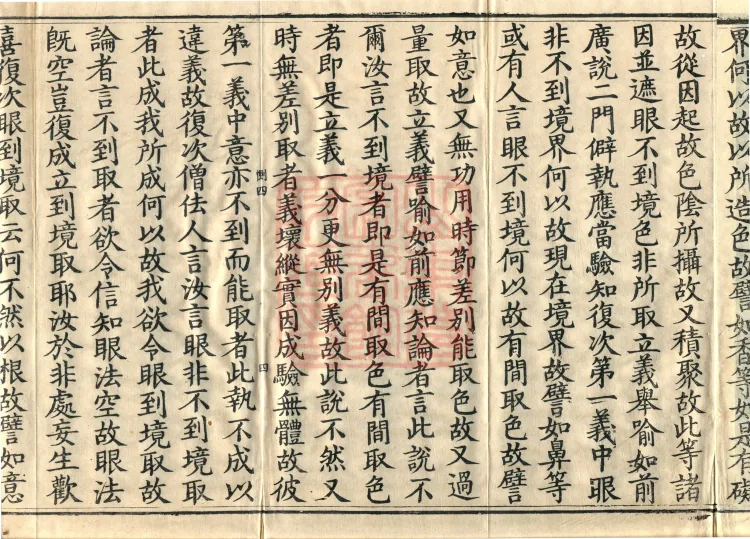 界何以故以所造色故譬如香等如是有礙
故從因起故色陰所攝故又積聚故此等諸
因並遮眼不到境色非所取立義舉喻如前
廣說二門僻執應當驗知復次第一義中眼
非不到境界何以故現在境界故譬如鼻等
或有人言眼不到境何以故有間取色故譬
如意也又無功用時節差別能取色故又過
量取故立義譬喻如前應知論者言此說不
爾汝言不到境者即是有間取色有間取色
者即是立義一分更無別義故此說不然又
時無差別取者義壞縱實因成驗無體故彼
倒四
四
第一義中意亦不到而能取者此執不成以
違義故復次僧佉人言汝言眼非不到境取
者此成我所成何以故我欲令眼到境取故
論者言不到取者欲令信知眼法空故眼法
既空豈復成立到境取耶汝於非處妄生歡
喜復次眼到境取云何不然以根故譬如意